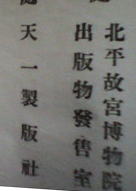 北平故宮博物院
出版物發售室
天一製版社